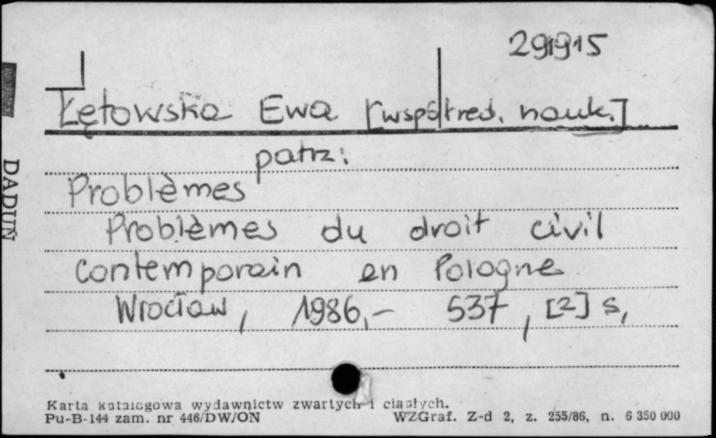 291915
Łętowska Ewa [współred. nauk.]
patrz:
Problèmes
Problèmes du droit civil
contemporain en Pologne
Wrocław, 1986,- 537, [2] s,
DADUŃ
Karta katalogowa wydawnictw zwartych i ciągłych.
Pu-B-144 zam. nr 446/DW/ON WZGraf. Z-d 2, z. 255/86, n. 6 350 000